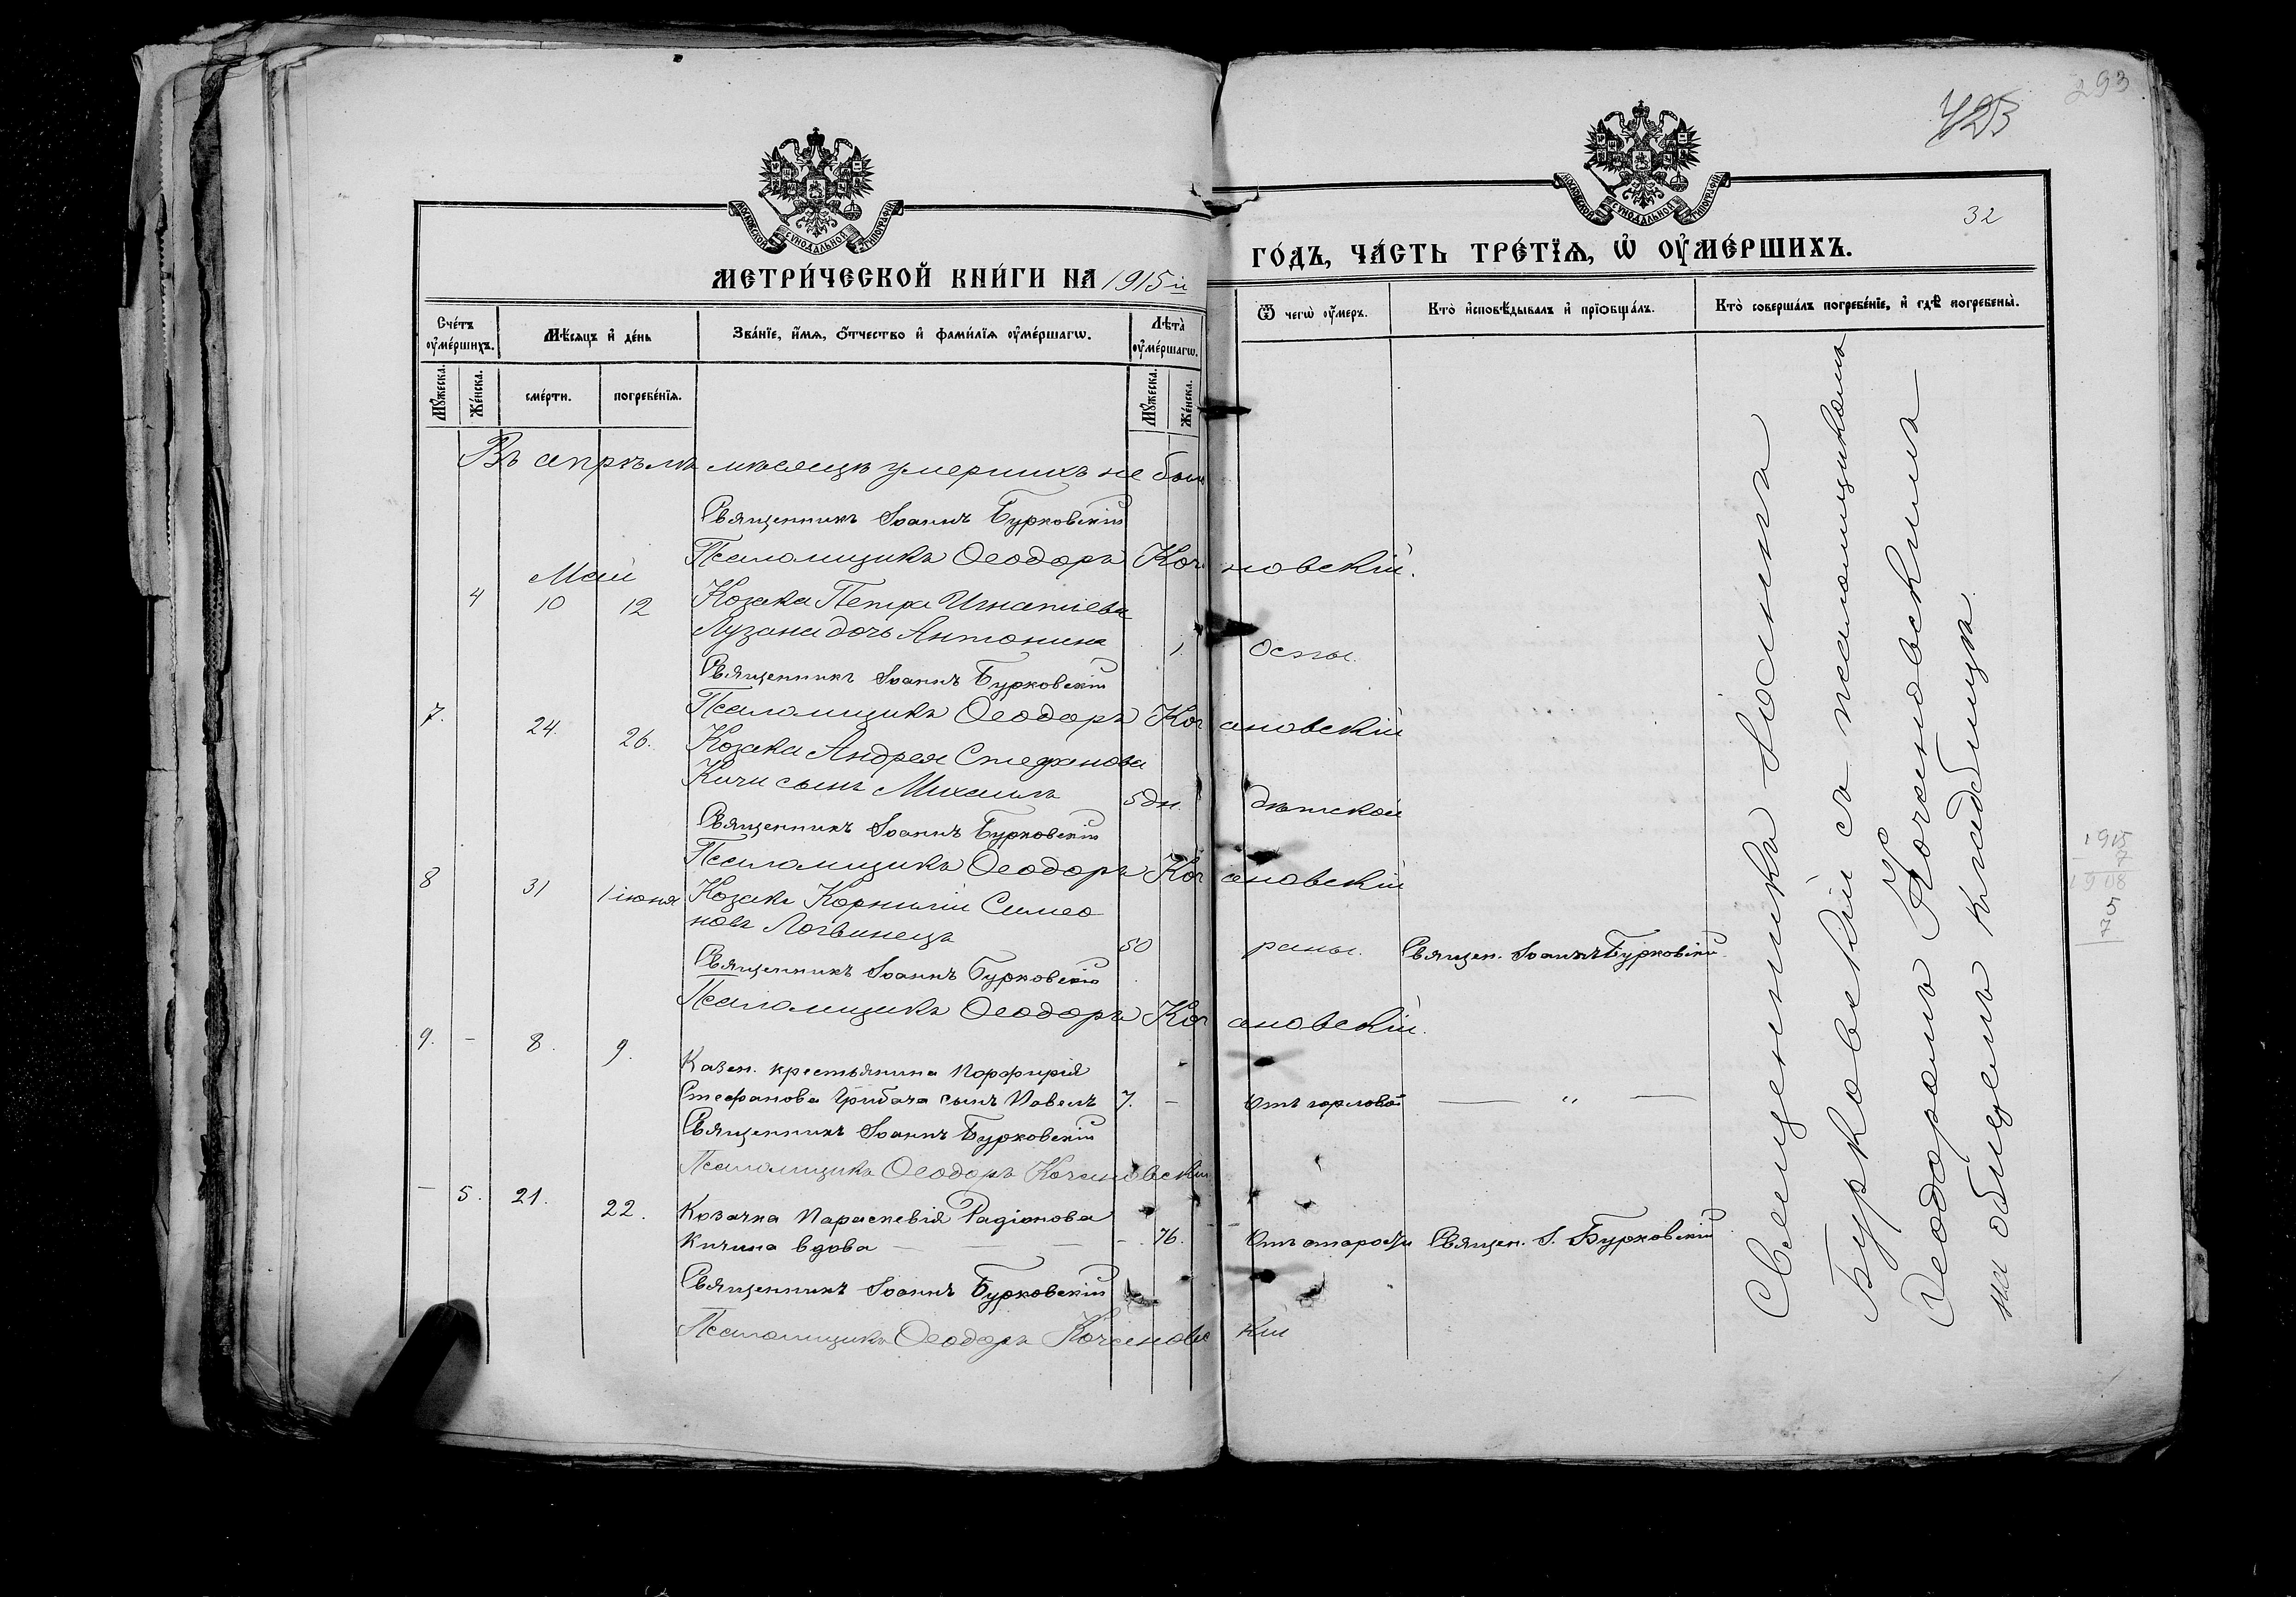 293
423
32
МОСКОВСКОЙ СѴНОДАЛЬНОЙ ТИПОГРАФІИ
МОСКОВСКОЙ СѴНОДАЛЬНОЙ ТИПОГРАФІИ
МЕТРИ́ЧЕСКОЙ КНИ́ГИ НА 1915й ГО́ДЪ, ЧА́СТЬ ТРЕ́ТЇѦ, Ѡ҆ ОУ҆МЕ́РШИХЪ.
Сче́тъ оу҆ме́ршихъ.
Мѣ́сѧцъ и҆ де́нь
Зва́нїе, и҆́мѧ, ѻ҆́тчество и҆ фами́лїѧ оу҆ме́ршагѡ.
Лѣ̀та оу҆ме́ршагѡ.
Ѿ чегѡ̀ оу҆́меръ.
Кто̀ и҆сповѣ́дывалъ и҆ прїѻбща́лъ.
Кто̀ соверша́лъ погребе́нїе, и҆ гдѣ̀ погребены̀.
Мꙋ́жеска.
Же́нска.
сме́рти.
погребе́нїѧ.
Мꙋ́жеска.
Же́нска.
Въ апрѣлѣ мѣсяцѣ умершихъ не было
Священникъ Іоаннъ Бурковскій
Псаломщикъ Ѳеодоръ Кочановскій.
Май
4 10 12 Козака Петра Игнатіева
Лузана дочь Антонина 1. Оспы.
Священникъ Іоаннъ Бурковскій
Псаломщикъ Ѳеодоръ Кочановскій
7. 24. 26. Козака Андрея Стефанова
Кичи сынъ Михаилъ 5 дн. дѣтской
Священникъ Іоаннъ Бурковскій
Псаломщикъ Ѳеодоръ Кочановскій
8 31 1 іюня Козакъ Корнилій Симео
новъ Логвинецъ 50 раны. Священ. Іоаннъ Бурковскій
Священникъ Іоаннъ Бурковскій
Псаломщикъ Ѳеодоръ Кочановскій.
9. - 8. 9. Казен. крестьянина Порфирія
Стефанова Грибача сынъ Павелъ 7. - Отъ горловой — " —
Священникъ Іоаннъ Бурковскій
Псаломщикъ Ѳеодоръ Кочановскій
- 5. 21. 22. Козачка Параскевія Радіонова
Кичина вдова — — - 76. Отъ старости Священ. І. Бурковскій
Священникъ Іоаннъ Бурковскій
Псаломщикъ Ѳеодоръ Кочановскій
Священникъ Іоаннъ
Бурковскій съ псаломщикомъ
Ѳеодоромъ Кочановскимъ
на общемъ кладбищѣ.
1915
7
1908
5
7